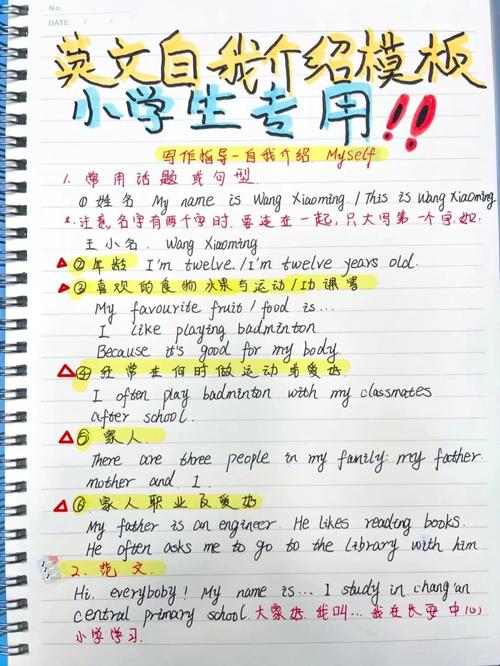 No.
DATE / /
英文自我介绍模板
小学生专用!!
写作指导-自我介绍 Myself
1. 常用话题或句型.
① 姓名 My name is Wang Xiaoming / This is Wang Xiaoming
*.注意,名字有两个字时,要连在一起,只大写第一个字.如:
王小名. Wang Xiaoming
② 年龄 I'm twelve./I'm twelve years old.
③ 喜欢的食物水果与运动/功课等
My favourite fruit / food is...
I like playing badminton
Because it's good for my body.
④ 经常在何时做运动或爱好
I often play badminton with my classmates
after school.
⑤ 家人.
There are three people in my family: my father.
mother and I.
⑥ 家人职业及爱好
My father is an engineer. He likes reading books.
He often asks me to go to the library with him
2. 范文.
Hi, everyboby! My name is... I study in chang'an
central primary school. 大家好,我叫... 我在长安中心
小学学习.